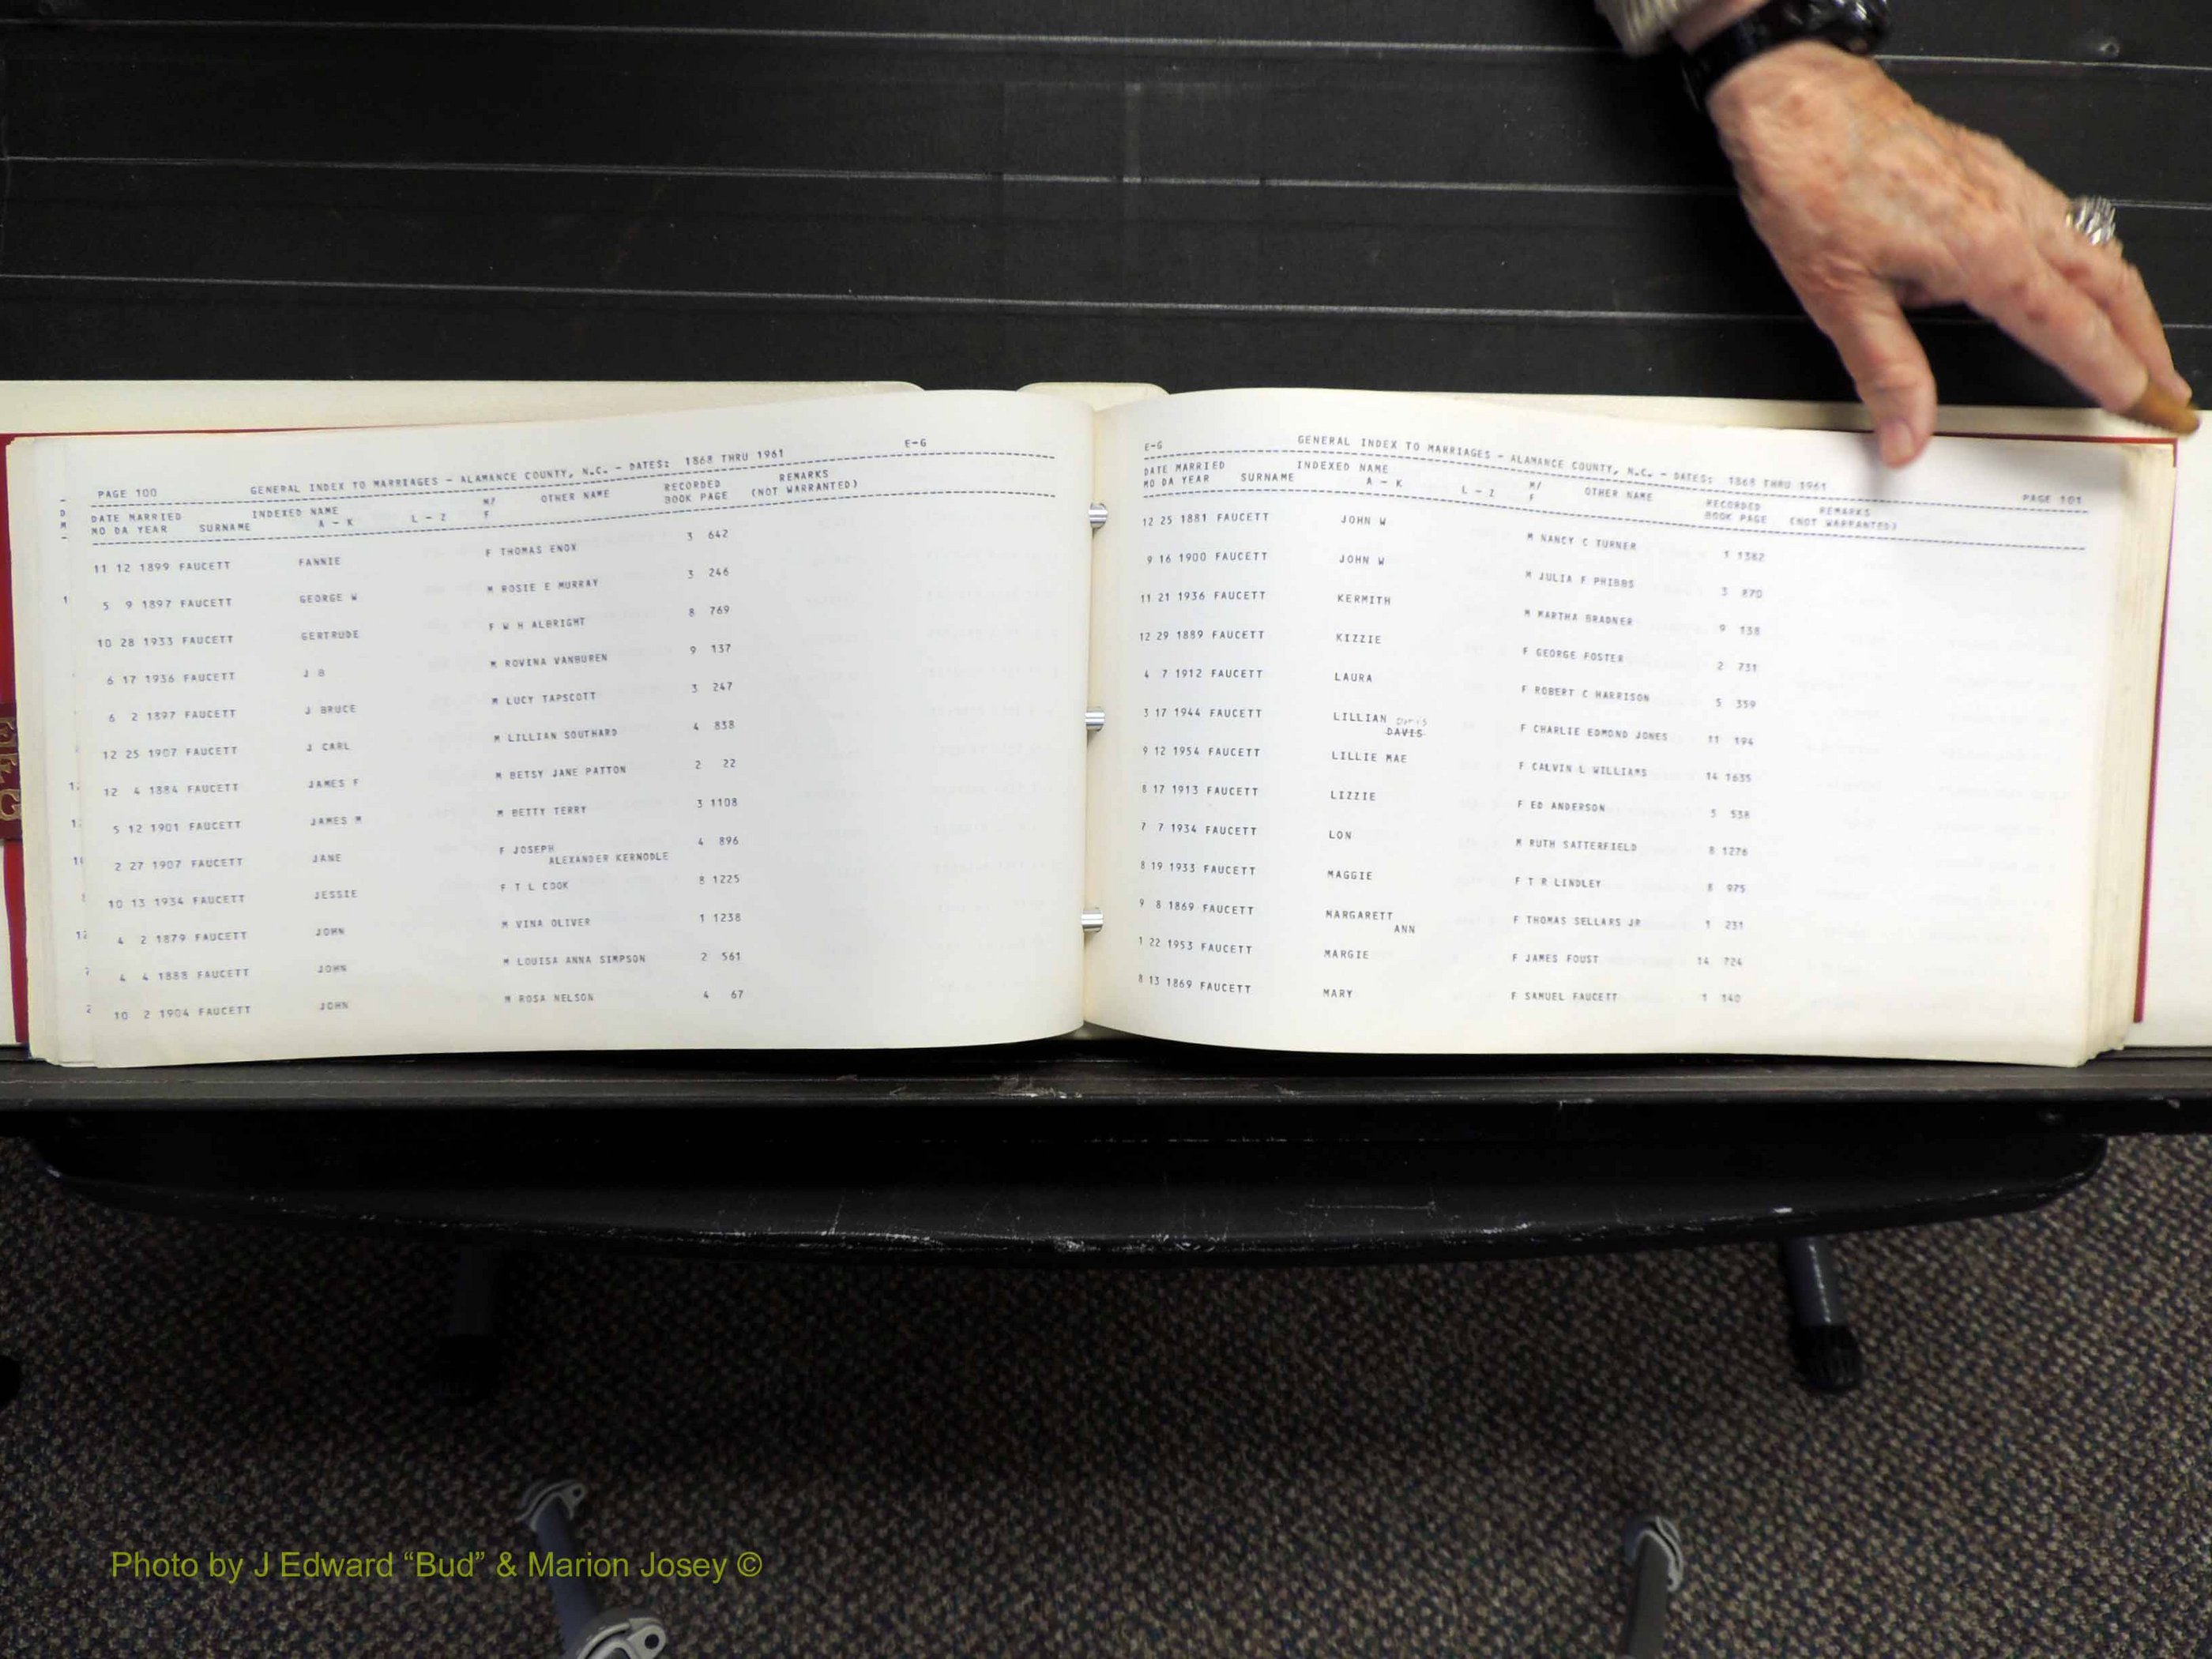 E-G
PAGE 100 GENERAL INDEX TO MARRIAGES - ALAMANCE COUNTY, N.C. - DATES: 1868 THRU 1961
DATE MARRIED INDEXED NAME M/ OTHER NAME RECORDED REMARKS
MO DA YEAR SURNAME A - K L - Z F BOOK PAGE (NOT WARRANTED)
11 12 1899 FAUCETT FANNIE F THOMAS ENOX 3 642
5 9 1897 FAUCETT GEORGE W M ROSIE E MURRAY 3 246
10 28 1933 FAUCETT GERTRUDE F W H ALBRIGHT 8 769
6 17 1936 FAUCETT J B M ROVENA VANBUREN 9 137
6 2 1897 FAUCETT J BRUCE M LUCY TAPSCOTT 3 247
12 25 1907 FAUCETT J CARL M LILLIAN SOUTHARD 4 838
12 4 1884 FAUCETT JAMES F M BETSY JANE PATTON 2 22
5 12 1901 FAUCETT JAMES M M BETTY TERRY 3 1108
2 27 1907 FAUCETT JANE F JOSEPH 4 896
ALEXANDER KERNODLE
10 13 1934 FAUCETT JESSIE F T L COOK 8 1225
4 2 1879 FAUCETT JOHN M VINA OLIVER 1 1238
4 4 1888 FAUCETT JOHN M LOUISA ANNA SIMPSON 2 561
10 2 1904 FAUCETT JOHN M ROSA NELSON 4 67
E-G GENERAL INDEX TO MARRIAGES - ALAMANCE COUNTY, N.C. - DATES: 1868 THRU 1961 PAGE 101
DATE MARRIED INDEXED NAME M/ OTHER NAME RECORDED REMARKS
MO DA YEAR SURNAME A - K L - Z F BOOK PAGE (NOT WARRANTED)
12 25 1881 FAUCETT JOHN W M NANCY C TURNER 1 1382
9 16 1900 FAUCETT JOHN W M JULIA F PHIBBS 3 870
11 21 1936 FAUCETT KERMITH M MARTHA BRADNER 9 138
12 29 1889 FAUCETT KIZZIE F GEORGE FOSTER 2 731
4 7 1912 FAUCETT LAURA F ROBERT C HARRISON 5 359
3 17 1944 FAUCETT LILLIAN DAVIS F CHARLIE EDMOND JONES 11 194
DAVIS
9 12 1954 FAUCETT LILLIE MAE F CALVIN L WILLIAMS 14 1635
8 17 1913 FAUCETT LIZZIE F ED ANDERSON 5 538
7 7 1934 FAUCETT LON M RUTH SATTERFIELD 8 1276
8 19 1933 FAUCETT MAGGIE F T R LINDLEY 8 975
9 8 1869 FAUCETT MARGARETT F THOMAS SELLARS JR 1 231
ANN
1 22 1953 FAUCETT MARGIE F JAMES FOUST 14 724
8 13 1869 FAUCETT MARY F SAMUEL FAUCETT 1 140
Photo by J Edward “Bud” & Marion Josey ©